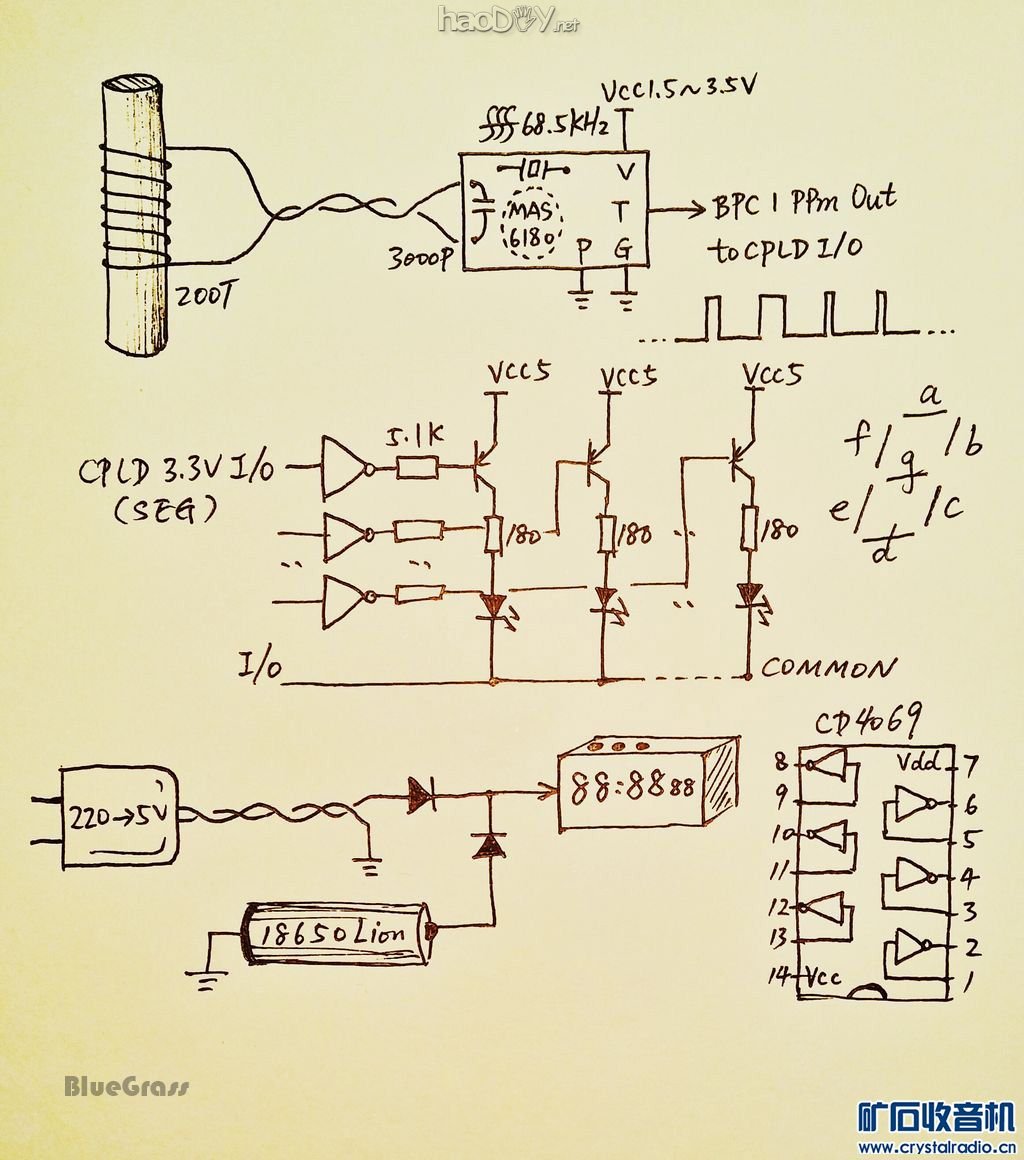 haoDIY.net
Vcc1.5~3.5V
68.5KHz
V
MAS
6180
T
P
G
BPC 1 PPm Out
to CPLD I/O
3000P
200T
Vcc5
Vcc5
Vcc5
5.1K
CPLD 3.3V I/O
(SEG)
180
180
180
a
f
b
g
e
c
d
I/O
COMMON
CD4069
220→5V
88:88 88
18650 Lion
8
Vdd
7
9
6
10
5
11
4
12
3
13
2
14
Vcc
1
BlueGrass
矿石收音机
www.crystalradio.cn